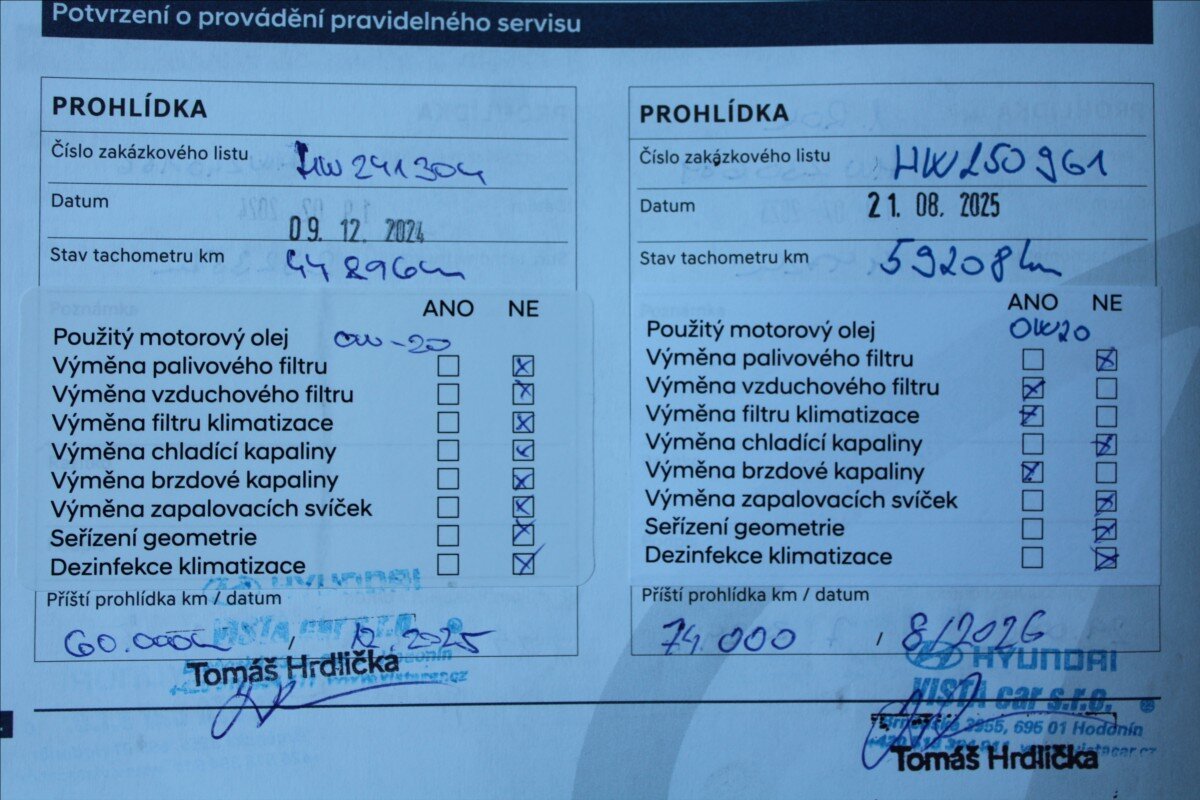 Potvrzení o provádění pravidelného servisu
PROHLÍDKA
Číslo zakázkového listu HW241304
Datum 09. 12. 2024
Stav tachometru km 44896km
Poznámka
ANO NE
Použitý motorový olej 0W-20
Výměna palivového filtru
Výměna vzduchového filtru
Výměna filtru klimatizace
Výměna chladící kapaliny
Výměna brzdové kapaliny
Výměna zapalovacích svíček
Seřízení geometrie
Dezinfekce klimatizace
Příští prohlídka km / datum
60.000km / 12.2025
HYUNDAI
VISTA car s.r.o.
Tomáš Hrdlička
PROHLÍDKA
Číslo zakázkového listu HW250961
Datum 21. 08. 2025
Stav tachometru km 59208km
ANO NE
Použitý motorový olej 0W20
Výměna palivového filtru
Výměna vzduchového filtru
Výměna filtru klimatizace
Výměna chladící kapaliny
Výměna brzdové kapaliny
Výměna zapalovacích svíček
Seřízení geometrie
Dezinfekce klimatizace
Příští prohlídka km / datum
74.000 / 8/2026
HYUNDAI
VISTA car s.r.o.
3955, 695 01 Hodonín
Tomáš Hrdlička